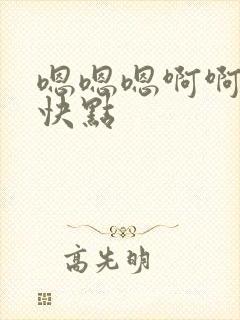 嗯嗯嗯啊啊
快點
高先明